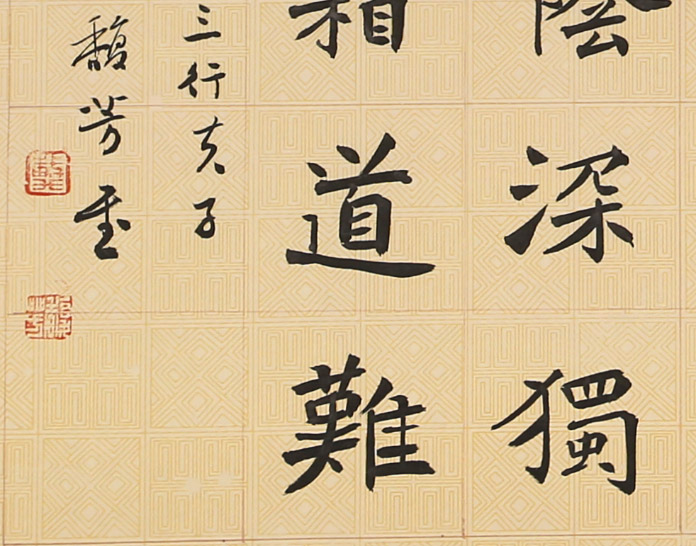 陰深獨
相道難
三行亥子
馥芳書